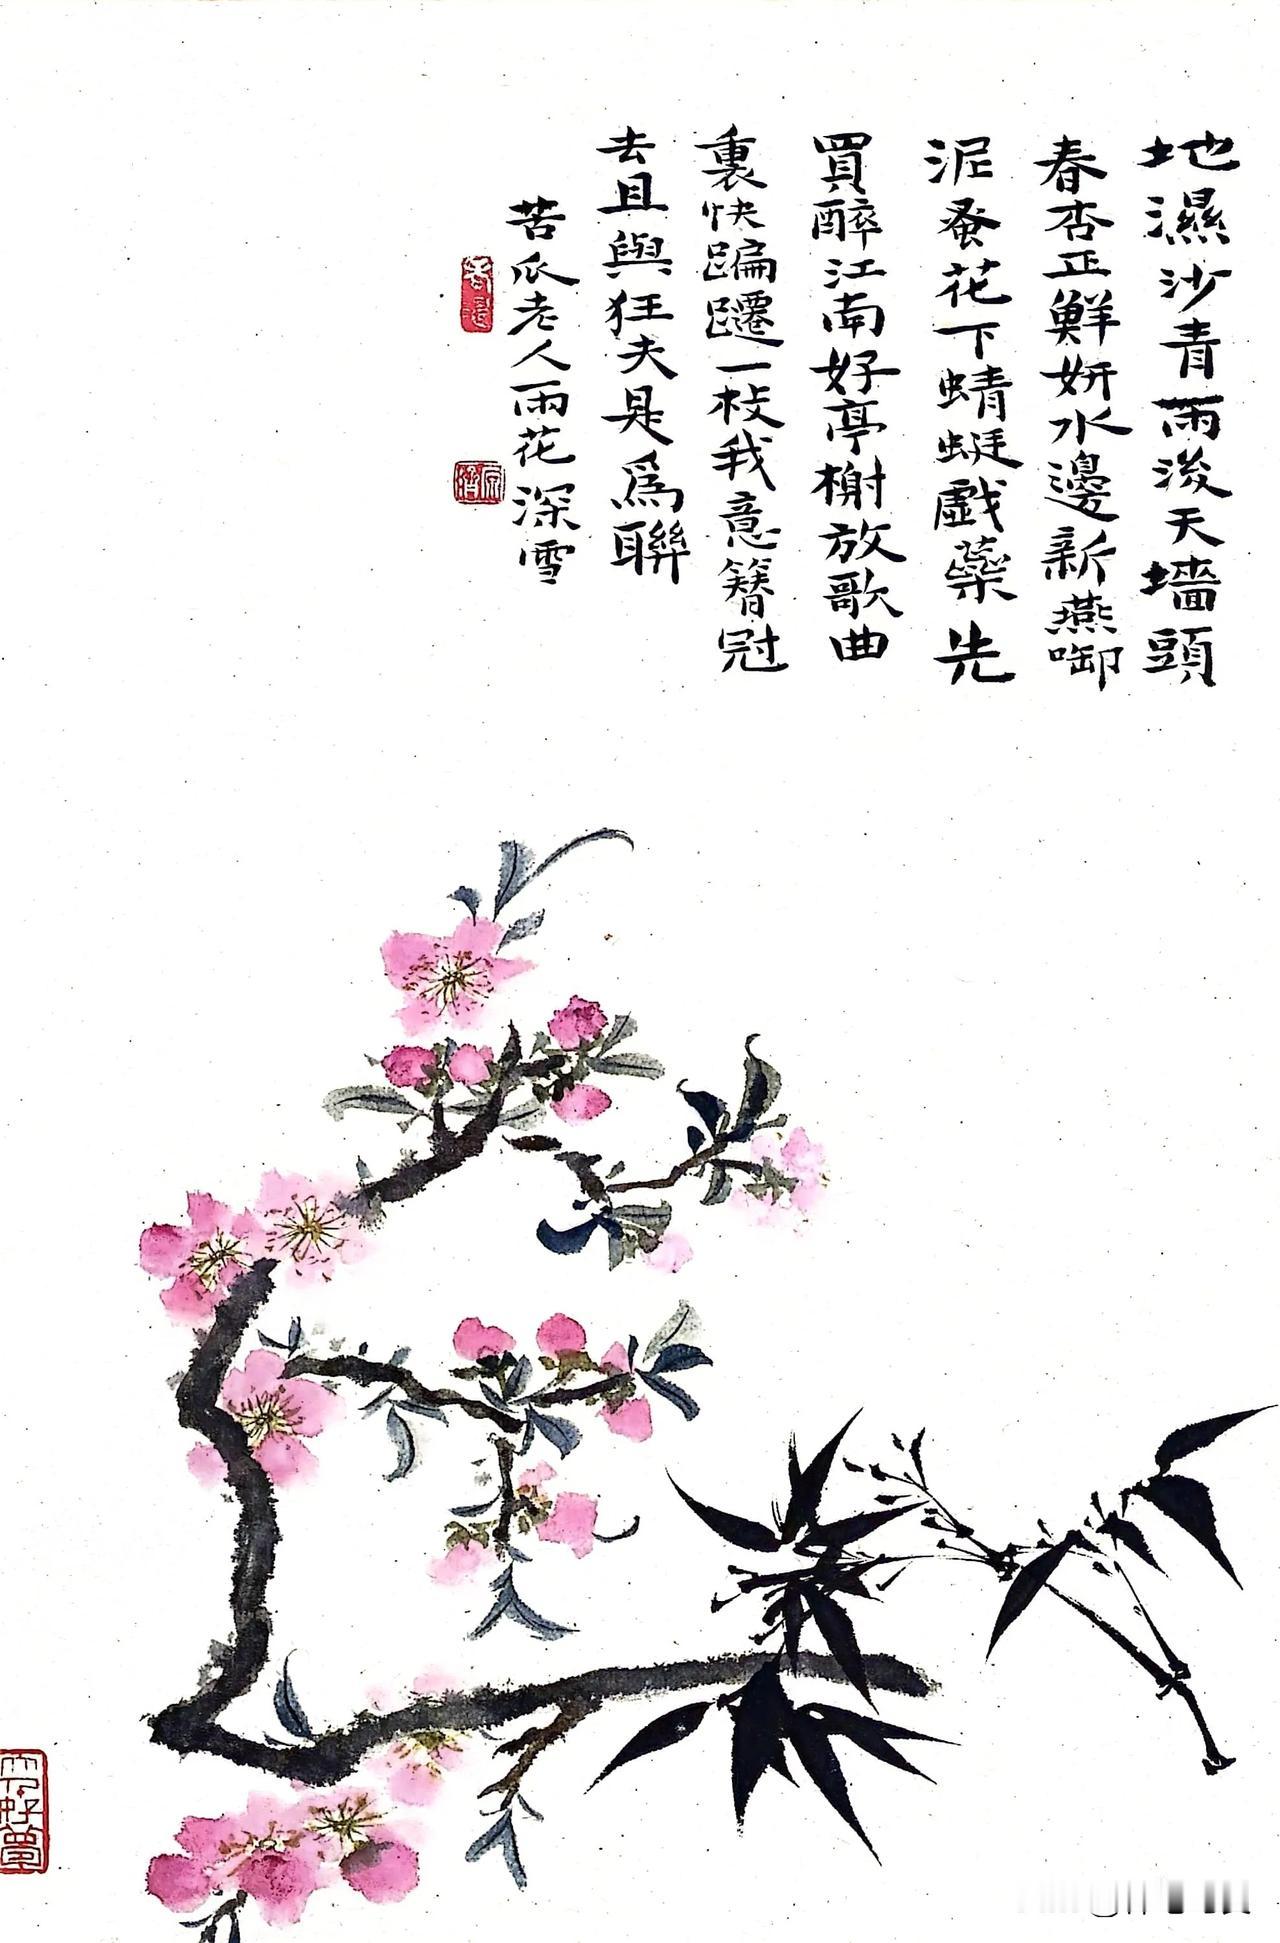 地濕沙青雨後天墻頭
春杏正鮮妍水邊新燕啣
泥蚤花下蜻蜓戲蘂先
買醉江南好亭榭放歌曲
裏快蹁躚一枝我意簪冠
去且與狂夫是爲聯
苦瓜老人雨花深雪
原濟